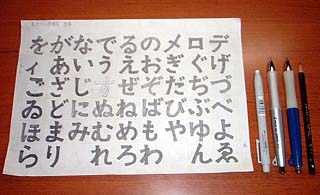 をがなでるのメロデ
ィあいうえおぎぐげ
ござじずぜぞだぢづ
ゐどにぬねばびぶべ
ほまみむめもやゆよ
らりれろわんゑ